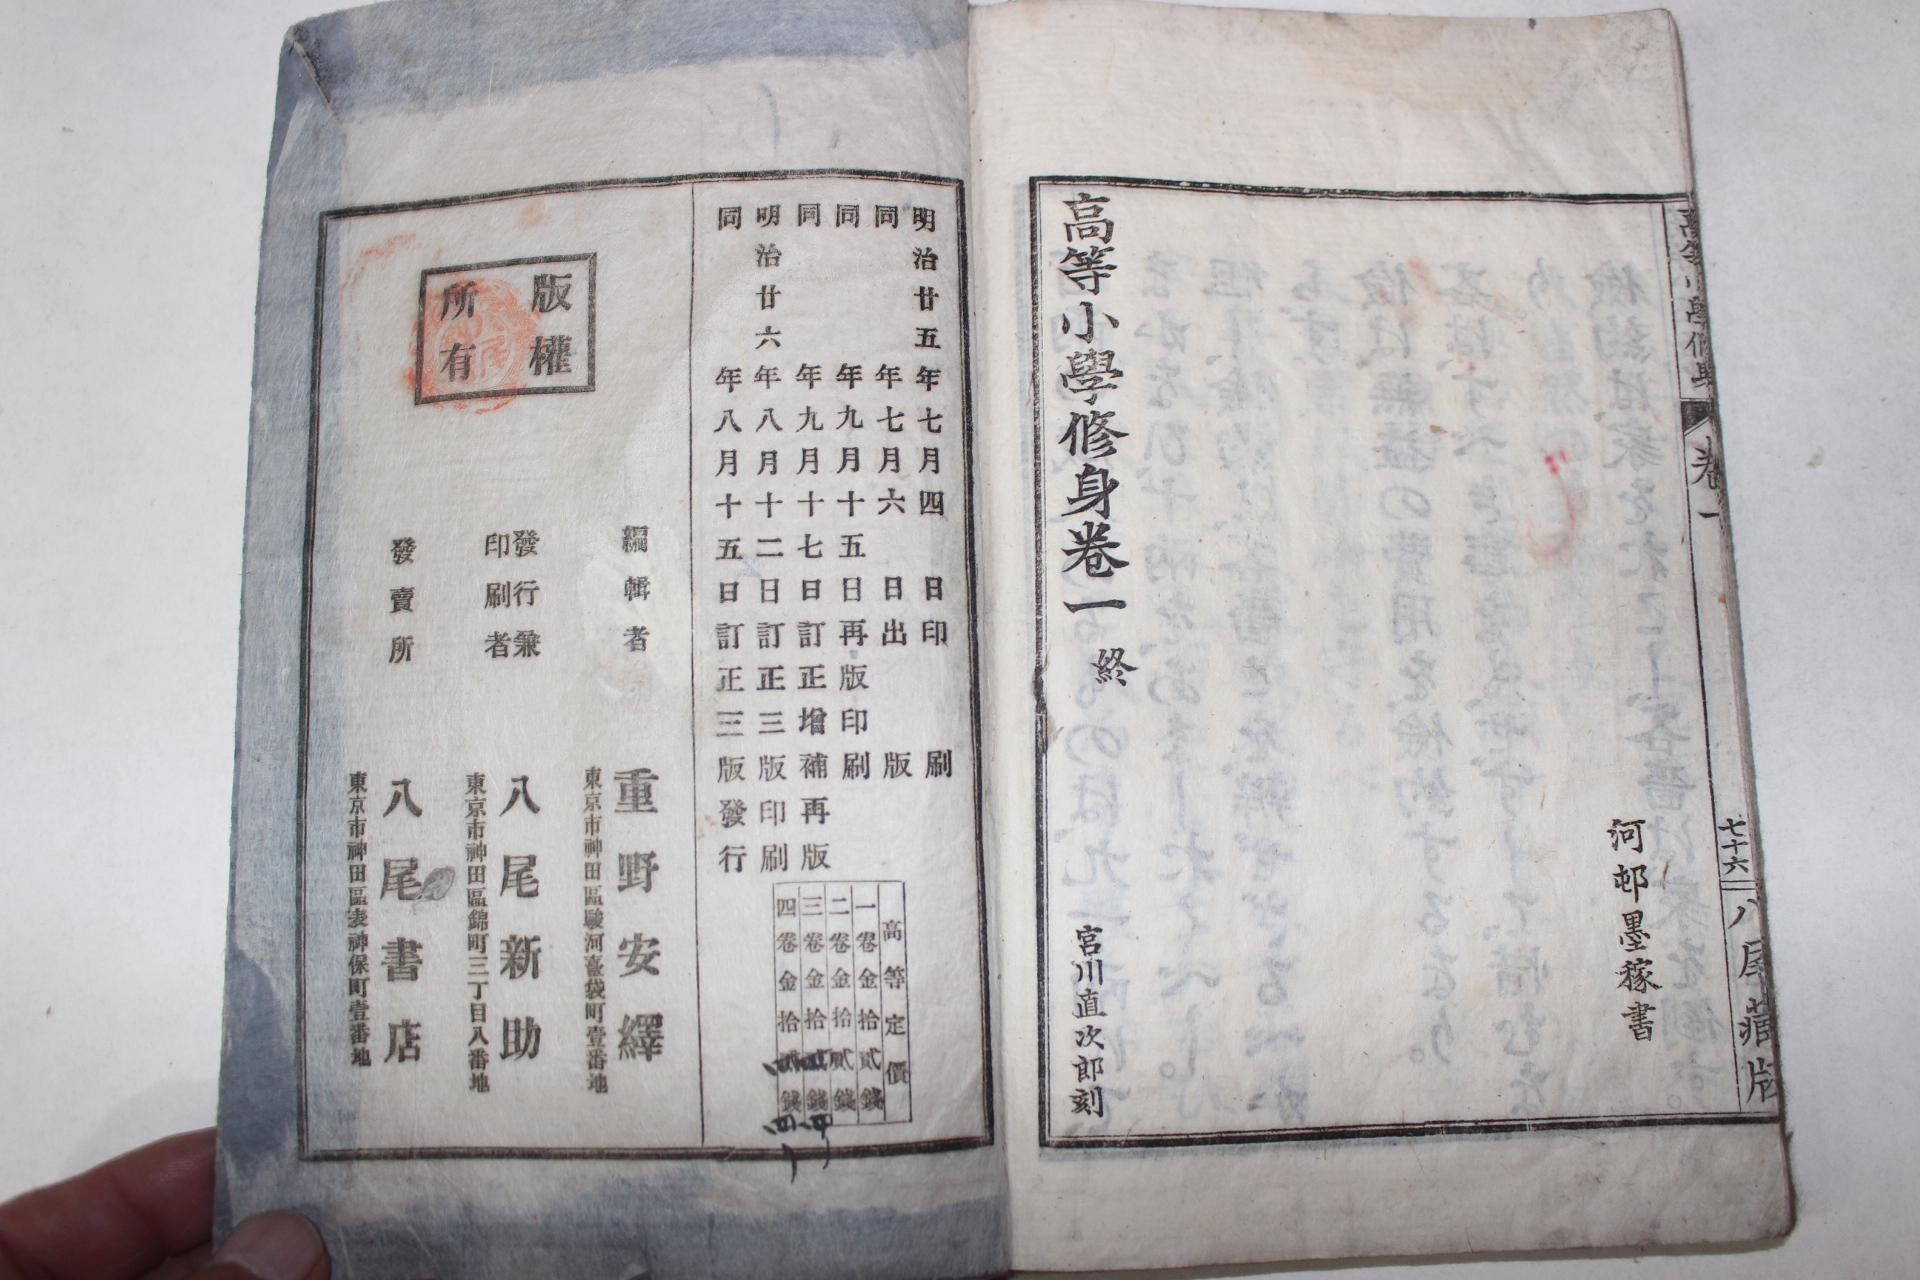 高等小學修身
卷一
七十六
八尾藏版
河邨墨稼書
高等小學修身卷一 終
宮川直次郎刻
明治廿五年七月四日印刷
同年七月六日出版
同年九月十五日再版印刷
同年九月十七日訂正增補再版
明治廿六年八月十二日訂正三版印刷
同年八月十五日訂正三版發行
高等定價
一卷金拾貳錢
二卷金拾貳錢
三卷金拾錢
四卷金拾錢
版權
所有
編輯者 重野安繹
東京市神田區駿河臺袋町壹番地
發行兼
印刷者 八尾新助
東京市神田區錦町三丁目八番地
發賣所 八尾書店
東京市神田區表神保町壹番地